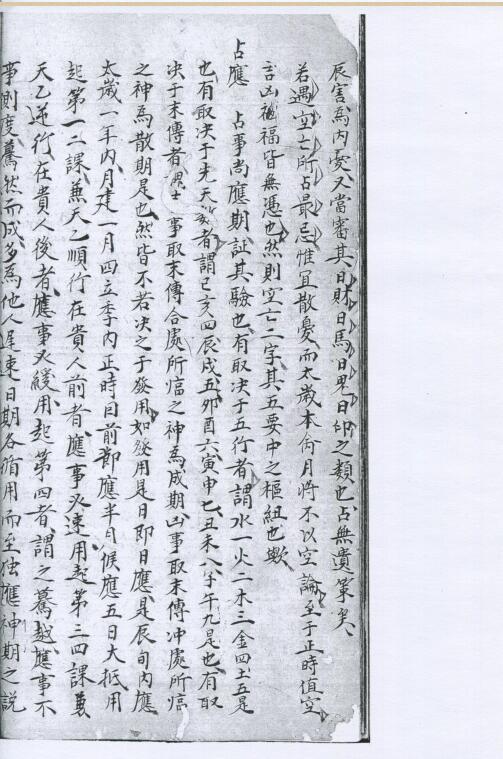 辰害為內憂又當審其日財日馬日鬼日印之類也占無遺筞矣
若遇空亡所占最忌惟宜散憂而太歲本命月將不以空論至于正時值空
言凶禍福皆無憑也然則空亡二字其五要中之樞紐也歟
占應　占事尚應期証其驗也有取决于五行者謂水一火二木三金四土五是
也有取决于先天数者謂巳亥四辰戌五夘酉六寅申七丑未八子午九是也有取
决于末傳者謂士事取末傳合處所臨之神為成期凶事取末傳冲處所臨
之神為散期是也然皆不若决之于發用如發用是日即日應是辰旬內應
太歲一年內月建一月四立季內正時日前節應半月候應五日大抵用
起第一二課兼天乙順行在貴人前者應事必速用起第三四課兼
天乙逆行在貴人後者應事必緩用起第四者謂之驀越應事不
事測度驀然而成多為他人遲速日期各循用而至独應神期之說